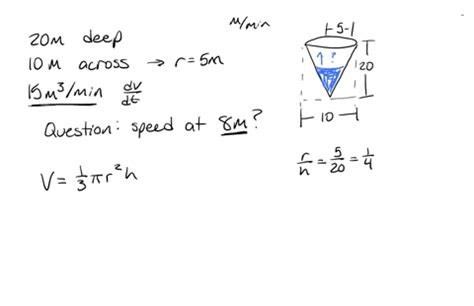 M/min
20m deep
10 M across → r = 5m
15m³/min dv/dt
Question: speed at 8m?
V = 1/3 πr²h
5
↑ ?
20
10
r/h = 5/20 = 1/4